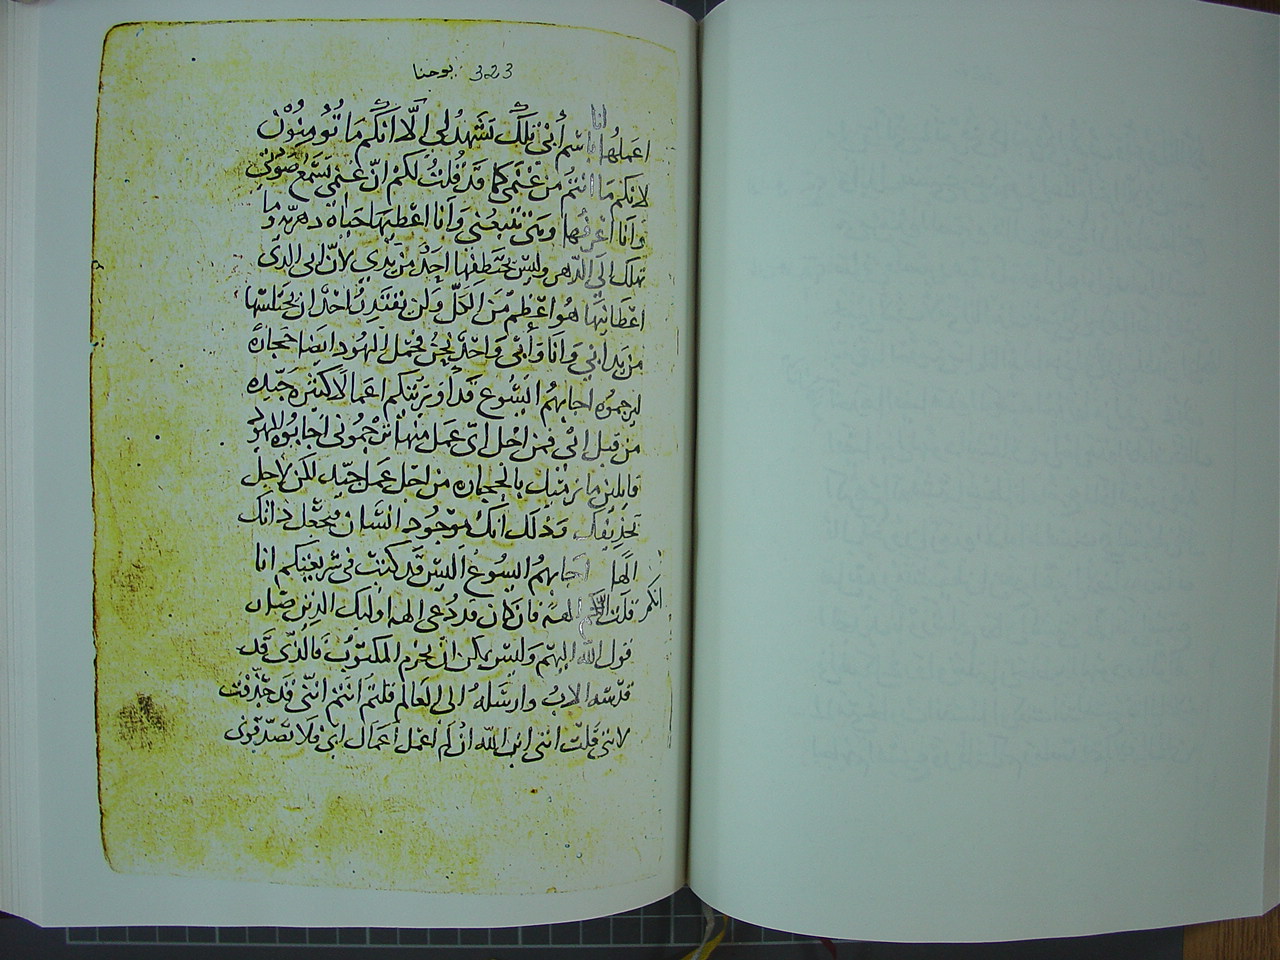 يوحنا 323
انا
اعملها باسم أبي تلك تشهد لي إلّا انكم ما تؤمنون
لانكم ما انتم من غنمي كما قد قلت لكم انّ غنمي تسمع صوتي
وانا اعرفها وهي تتبعني وانا اعطيها حياة دهريّه وما
تهلك الي الدّهر وليس يختطفها احد من يدي لانّ ابي الذي
اعطانيها هو اعظم من الكلّ ولن يقتدر احد ان يختلسها
من يد أبي وانا وأبي واحد نحن فحمل اليهود ايضا حجارة
ليرجموه اجابهم اليسوع قد اوريتكم اعمالا كثيره جيّده
من قبل ابي فمن اجل ايّ عمل منها ترجموني اجابوه اليهود
قايلين ما نرميك بالحجاره من اجل عمل جيّد لكن لاجل
تجديفك وذلك انك موجود انسان فتجعل ذاتك
الها اجابهم اليسوع اليس قد كتب في شريعتكم انا
قلت انكم الهه فان كان قد دعي الهه اوليك الذين صار
قول الله اليهم وليس يمكن ان يخرم المكتوب فالذي قد
قدّسه الاب وارسله الى العالم قلتم انتم انني قد جدّفت
لانني قلت انني ابن الله ان لم اعمل اعمال ابي فلا تصدّقوني